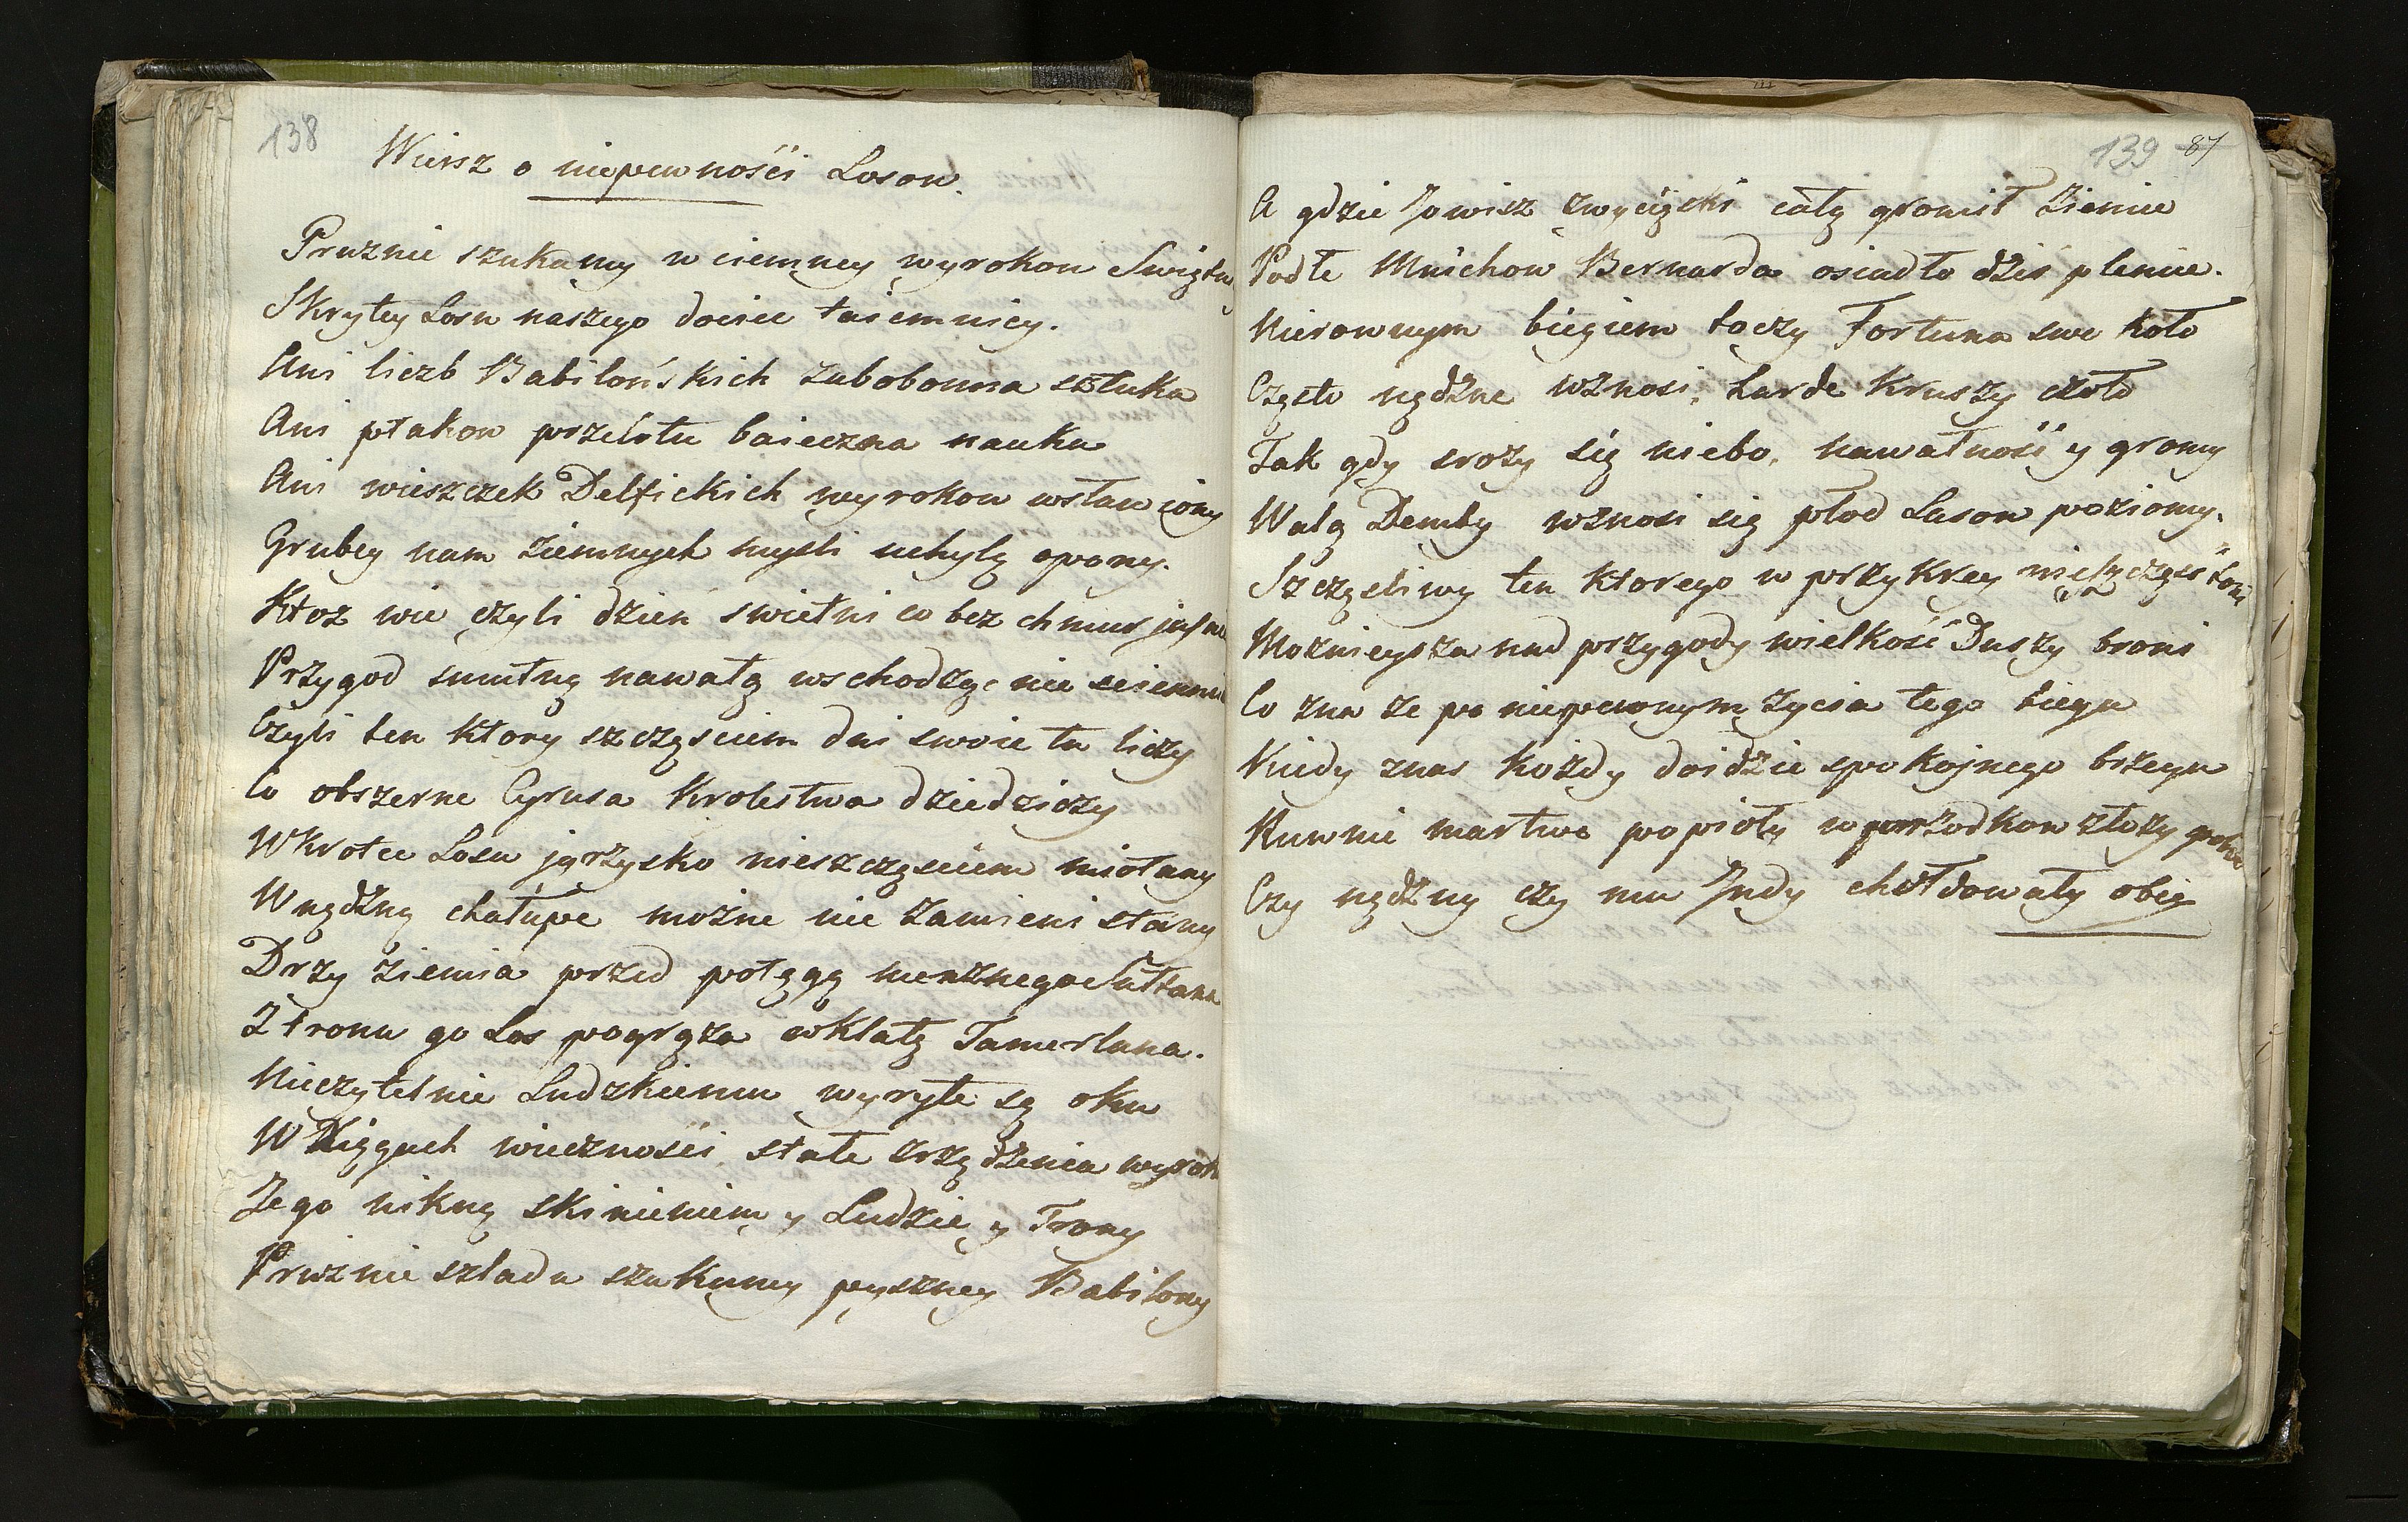 138
Wiersz o niepewnośći Losow.
Prużnie szukamy w ciemney wyrokow
Skrytey Losu naszego dociec taiemnicy.
Ani liczb Babilońskich zabobonna sztuka
Ani ptakow przelotu baieczna nauka
Ani wieszczek Delfickich wyrokow wsławiony
Grubey nam ziemnych mysli uchylą opony.
Ktoz wie czyli dzień swietni co bez chmur
Przygod smutną nawałą wschodząc nie sciemni
Czyli ten ktory szczęsciem dni swoie tu liczy
Co obszerne Cyrusa Krolestwa dziedziczy
Wkrotce Losu jgrzysko nieszczęsciem miotany
W nędzną chałupe możne nie zamieni stany
Drzy ziemia przed potęgą menznego Sułtana
Z tronu go Los pogrąża w klatę Tamerlana.
Nieczytelnie Ludzkiemu wyryte są oku
W Xięgach wiecznośći stałe zrządzenia wyroku
Jego nikną skinieniem y Ludzie y Trony
Prużnie szladu szukamy pyszney Babilony
139 87
A gdzie Jowisz zwycięzki całą gromił Ziemie
Podłe Mnichow Bernarda osiadło dźiś plemie.
Nierownym biegiem toczy Fortuna swe koło
Często nędzne wznosi, harde kruszy czoło
Tak gdy sroży się niebo, nawałnośi y gromy
Walą Demby wznosi się płod Lasow poziomy.
Szczęsliwy ten ktorego w przykrey
Moznieysza nad przygody wielkość Duszy broni
Co zna ze po niepewnym zycia tego biegu
Kiedy znas każdy doidzie spokojnego brzegu
Ruwnie martwe popioły w przodkow złozy grobie
Czy nędzny czy mu Jndy chołdowały obie